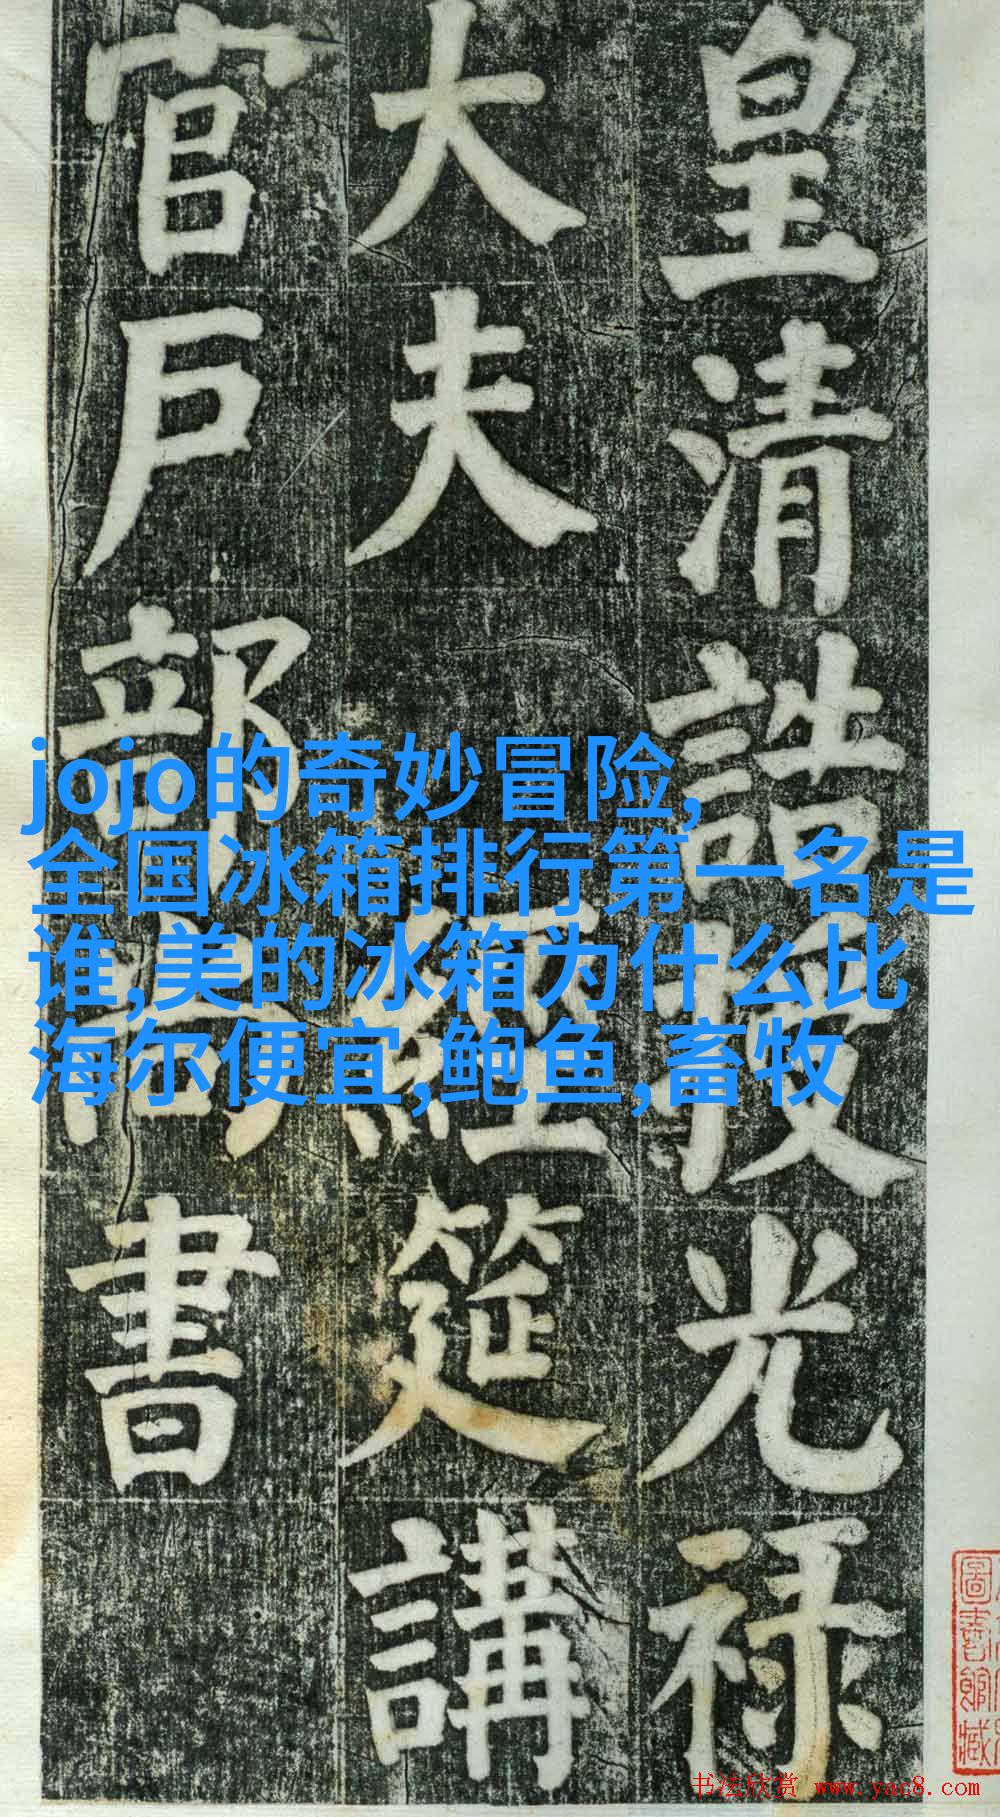 皇清誥授光禄
大夫 經筵講
官戶部尚書
jojo的奇妙冒险,
全国冰箱排行第一名是
谁,美的冰箱为什么比
海尔便宜,鲍鱼,畜牧
圖書館藏
书法欣赏 www.yac8.com